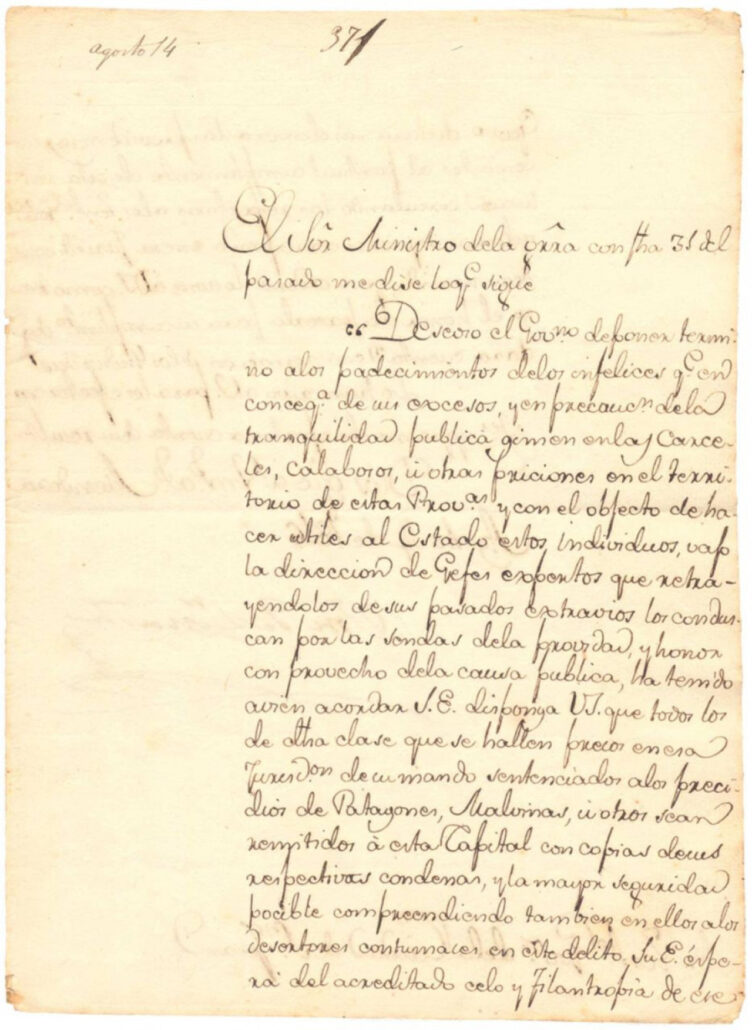 agosto 14
371
El Sōr Ministro dela grra con fha 31 del
pasado me dise loqe. sigue
"Deseoso el Govno. deponer termi-
no alos padecimientos delos infelices qe. en
conceqa. de sus excesos, y en precaucn. dela
tranquilidad publica gimen en las Carce-
les, calabosos, ú otras priciones en el terri-
torio de estas Provas. y con el objecto de ha-
cer utiles al Estado estos, individuos, vajo
la direccion de Gefes expertos que retra-
yendolos de sus pasados extravios los condus-
can por las sendas dela providad, y honor
con provecho dela causa publica, ha tenido
avien acordar S.E. disponga VS. que todos los
de dha clase que se hallen presos en esa
Jurisdon. de su mando sentenciados alos preci-
dios de Patagones, Malvinas, ú otros sean
remitidos à esta Capital con copias de sus
respectivas condenas, y la mayor seguridad
pocible compreendiendo tambien en ellos alos
desertores contumaces en este delito. Su E. éspe-
rá del acreditado celo y filantropia de ese